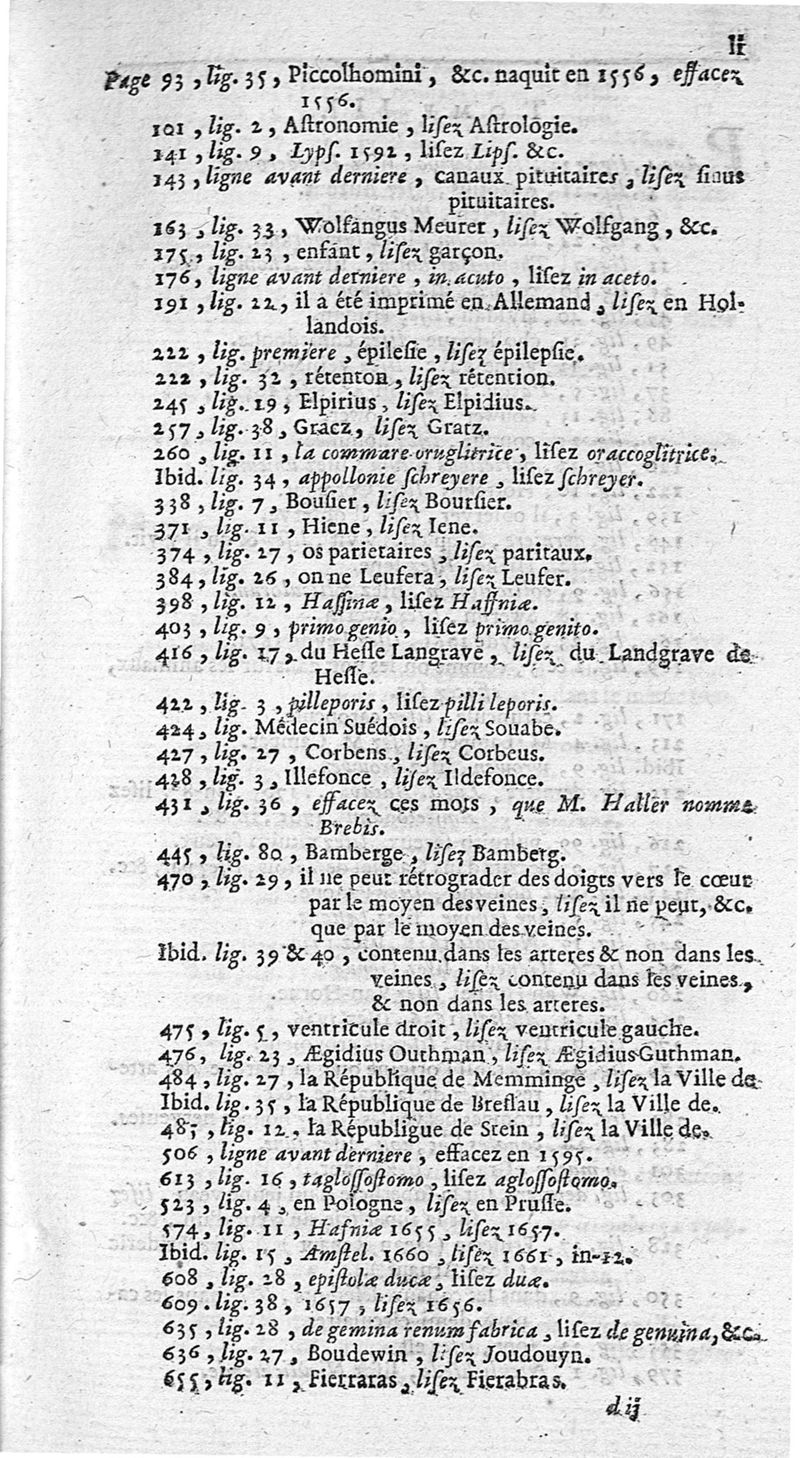 lj
Page 93, lig. 35, Piccolhomini, &c. naquit en 1556, effacez
1556.
101, lig. 2, Aſtronomie, liſez Aſtrologie.
141, lig. 9, Lypſ. 1592, liſez Lipſ. &c.
143, ligne avant derniere, canaux pituitaires, liſez ſinus
pituitaires.
163, lig. 33, Wolfangus Meurer, liſez Wolfgang, &c.
175, lig. 23, enfant, liſez garçon.
176, ligne avant derniere, in acuto, liſez in aceto.
191, lig. 22, il a été imprimé en Allemand, liſez en Hol-
landois.
222, lig. premiere, épileſie, liſez épilepſie.
222, lig. 32, rétenton, liſez rétention.
245, lig. 19, Elpirius, liſez Elpidius.
257, lig. 38, Gracz, liſez Gratz.
260, lig. 11, la commare oruglitrice, liſez oraccoglitrice.
Ibid. lig. 34, appollonie ſchreyere, liſez ſchreyer.
338, lig. 7, Bouſier, liſez Bourſier.
371, lig. 11, Hiene, liſez Iene.
374, lig. 27, os parietaires, liſez paritaux.
384, lig. 26, on ne Leufera, liſez Leufer.
398, lig. 12, Haſſinæ, liſez Haffniæ.
403, lig. 9, primo genio, liſez primo genito.
416, lig. 17, du Heſſe Langrave, liſez du Landgrave de
Heſſe.
422, lig. 3, pilleporis, liſez pilli leporis.
424, lig. Médecin Suédois, liſez Souabe.
427, lig. 27, Corbens, liſez Corbeus.
428, lig. 3, Illefonce, liſez Ildefonce.
431, lig. 36, effacez ces mots, que M. Haller nomme
Brebis.
445, lig. 80, Bamberge, liſez Bamberg.
470, lig. 29, il ne peut rétrograder des doigts vers le cœur
par le moyen des veines, liſez il ne peut, &c.
que par le moyen des veines.
Ibid. lig. 39 & 40, contenu dans les arteres & non dans les
veines, liſez contenu dans les veines,
& non dans les arteres.
475, lig. 5, ventricule droit, liſez ventricule gauche.
476, lig. 23, Ægidius Outhman, liſez Ægidius Guthman.
484, lig. 27, la République de Memminge, liſez la Ville de
Ibid. lig. 35, la République de Breſlau, liſez la Ville de.
487, lig. 12, la Républigue de Stein, liſez la Ville de.
506, ligne avant derniere, effacez en 1595.
613, lig. 16, tagloſſoſtomo, liſez agloſſoſtomo.
523, lig. 4, en Pologne, liſez en Pruſſe.
574, lig. 11, Hafniæ 1655, liſez 1657.
Ibid. lig. 15, Amſtel. 1660, liſez 1661, in-12.
608, lig. 28, epiſtolæ ducæ, liſez duæ.
609. lig. 38, 1657, liſez 1656.
635, lig. 28, de gemina renum fabrica, liſez de genuina, &c.
636, lig. 27, Boudewin, liſez Joudouyn.
655, lig. 11, Fierraras, liſez Fierabras.
d ij